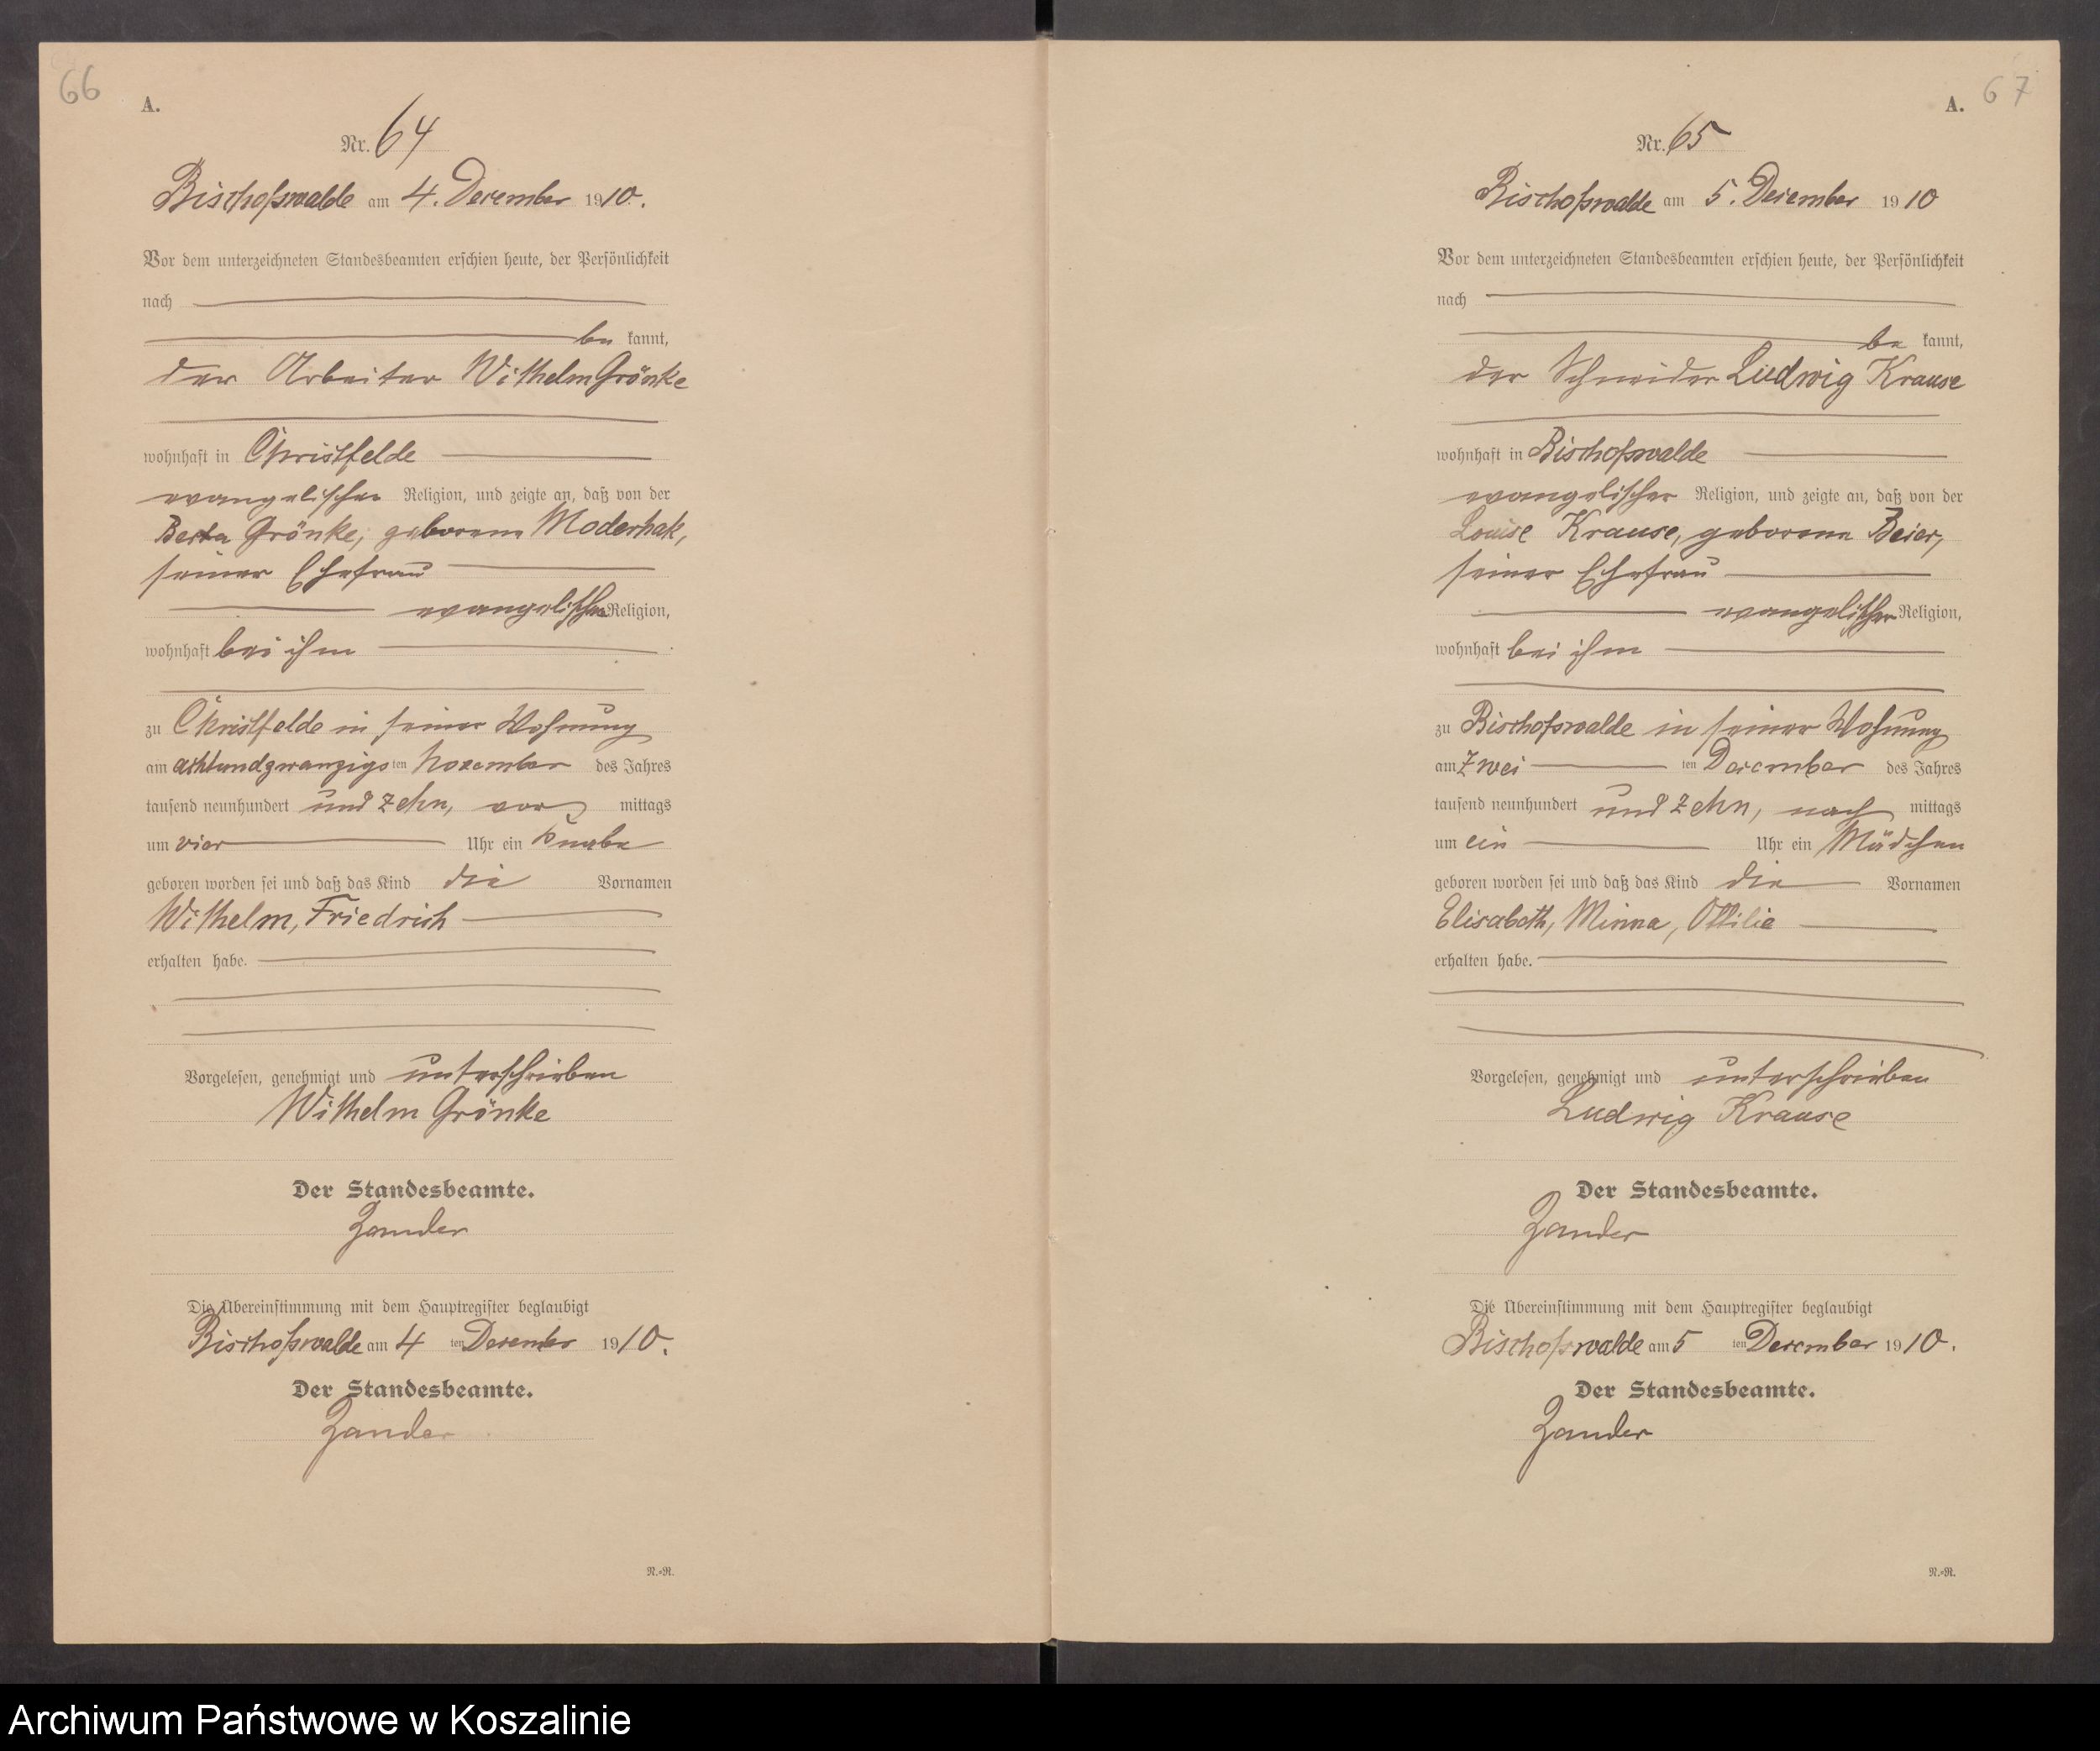 66
A.
Nr. 64
Bischofswalde am 4. Dezember 1910.
Vor dem unterzeichneten Standesbeamten erschien heute, der Persönlichkeit
nach
be kannt,
der Arbeiter Wilhelm Grönke
wohnhaft in Christfelde
evangelischer Religion, und zeigte an, daß von der
Berta Grönke, geborene Moderhak,
seiner Ehefrau
evangelischer Religion,
wohnhaft bei ihm
zu Christfelde in seiner Wohnung
am achtundzwanzigs ten November des Jahres
tausend neunhundert und zehn, vor mittags
um vier Uhr ein Knabe
geboren worden sei und daß das Kind die Vornamen
Wilhelm, Friedrich
erhalten habe.
Vorgelesen, genehmigt und unterschrieben
Wilhelm Grönke
Der Standesbeamte.
Zander
Die Übereinstimmung mit dem Hauptregister beglaubigt
Bischofswalde am 4 ten Dezember 1910.
Der Standesbeamte.
Zander
N.-R.
67
A.
Nr. 65
Bischofswalde am 5. Dezember 1910
Vor dem unterzeichneten Standesbeamten erschien heute, der Persönlichkeit
nach
be kannt,
der Schneider Ludwig Krause
wohnhaft in Bischofswalde
evangelischer Religion, und zeigte an, daß von der
Louise Krause, geborene Beier,
seiner Ehefrau
evangelischer Religion,
wohnhaft bei ihm
zu Bischofswalde in seiner Wohnung
am zwei ten Dezember des Jahres
tausend neunhundert und zehn, nach mittags
um ein Uhr ein Mädchen
geboren worden sei und daß das Kind die Vornamen
Elisabeth, Minna, Ottilie
erhalten habe.
Vorgelesen, genehmigt und unterschrieben
Ludwig Krause
Der Standesbeamte.
Zander
Die Übereinstimmung mit dem Hauptregister beglaubigt
Bischofswalde am 5 ten Dezember 1910.
Der Standesbeamte.
Zander
N.-R.
Archiwum Państwowe w Koszalinie